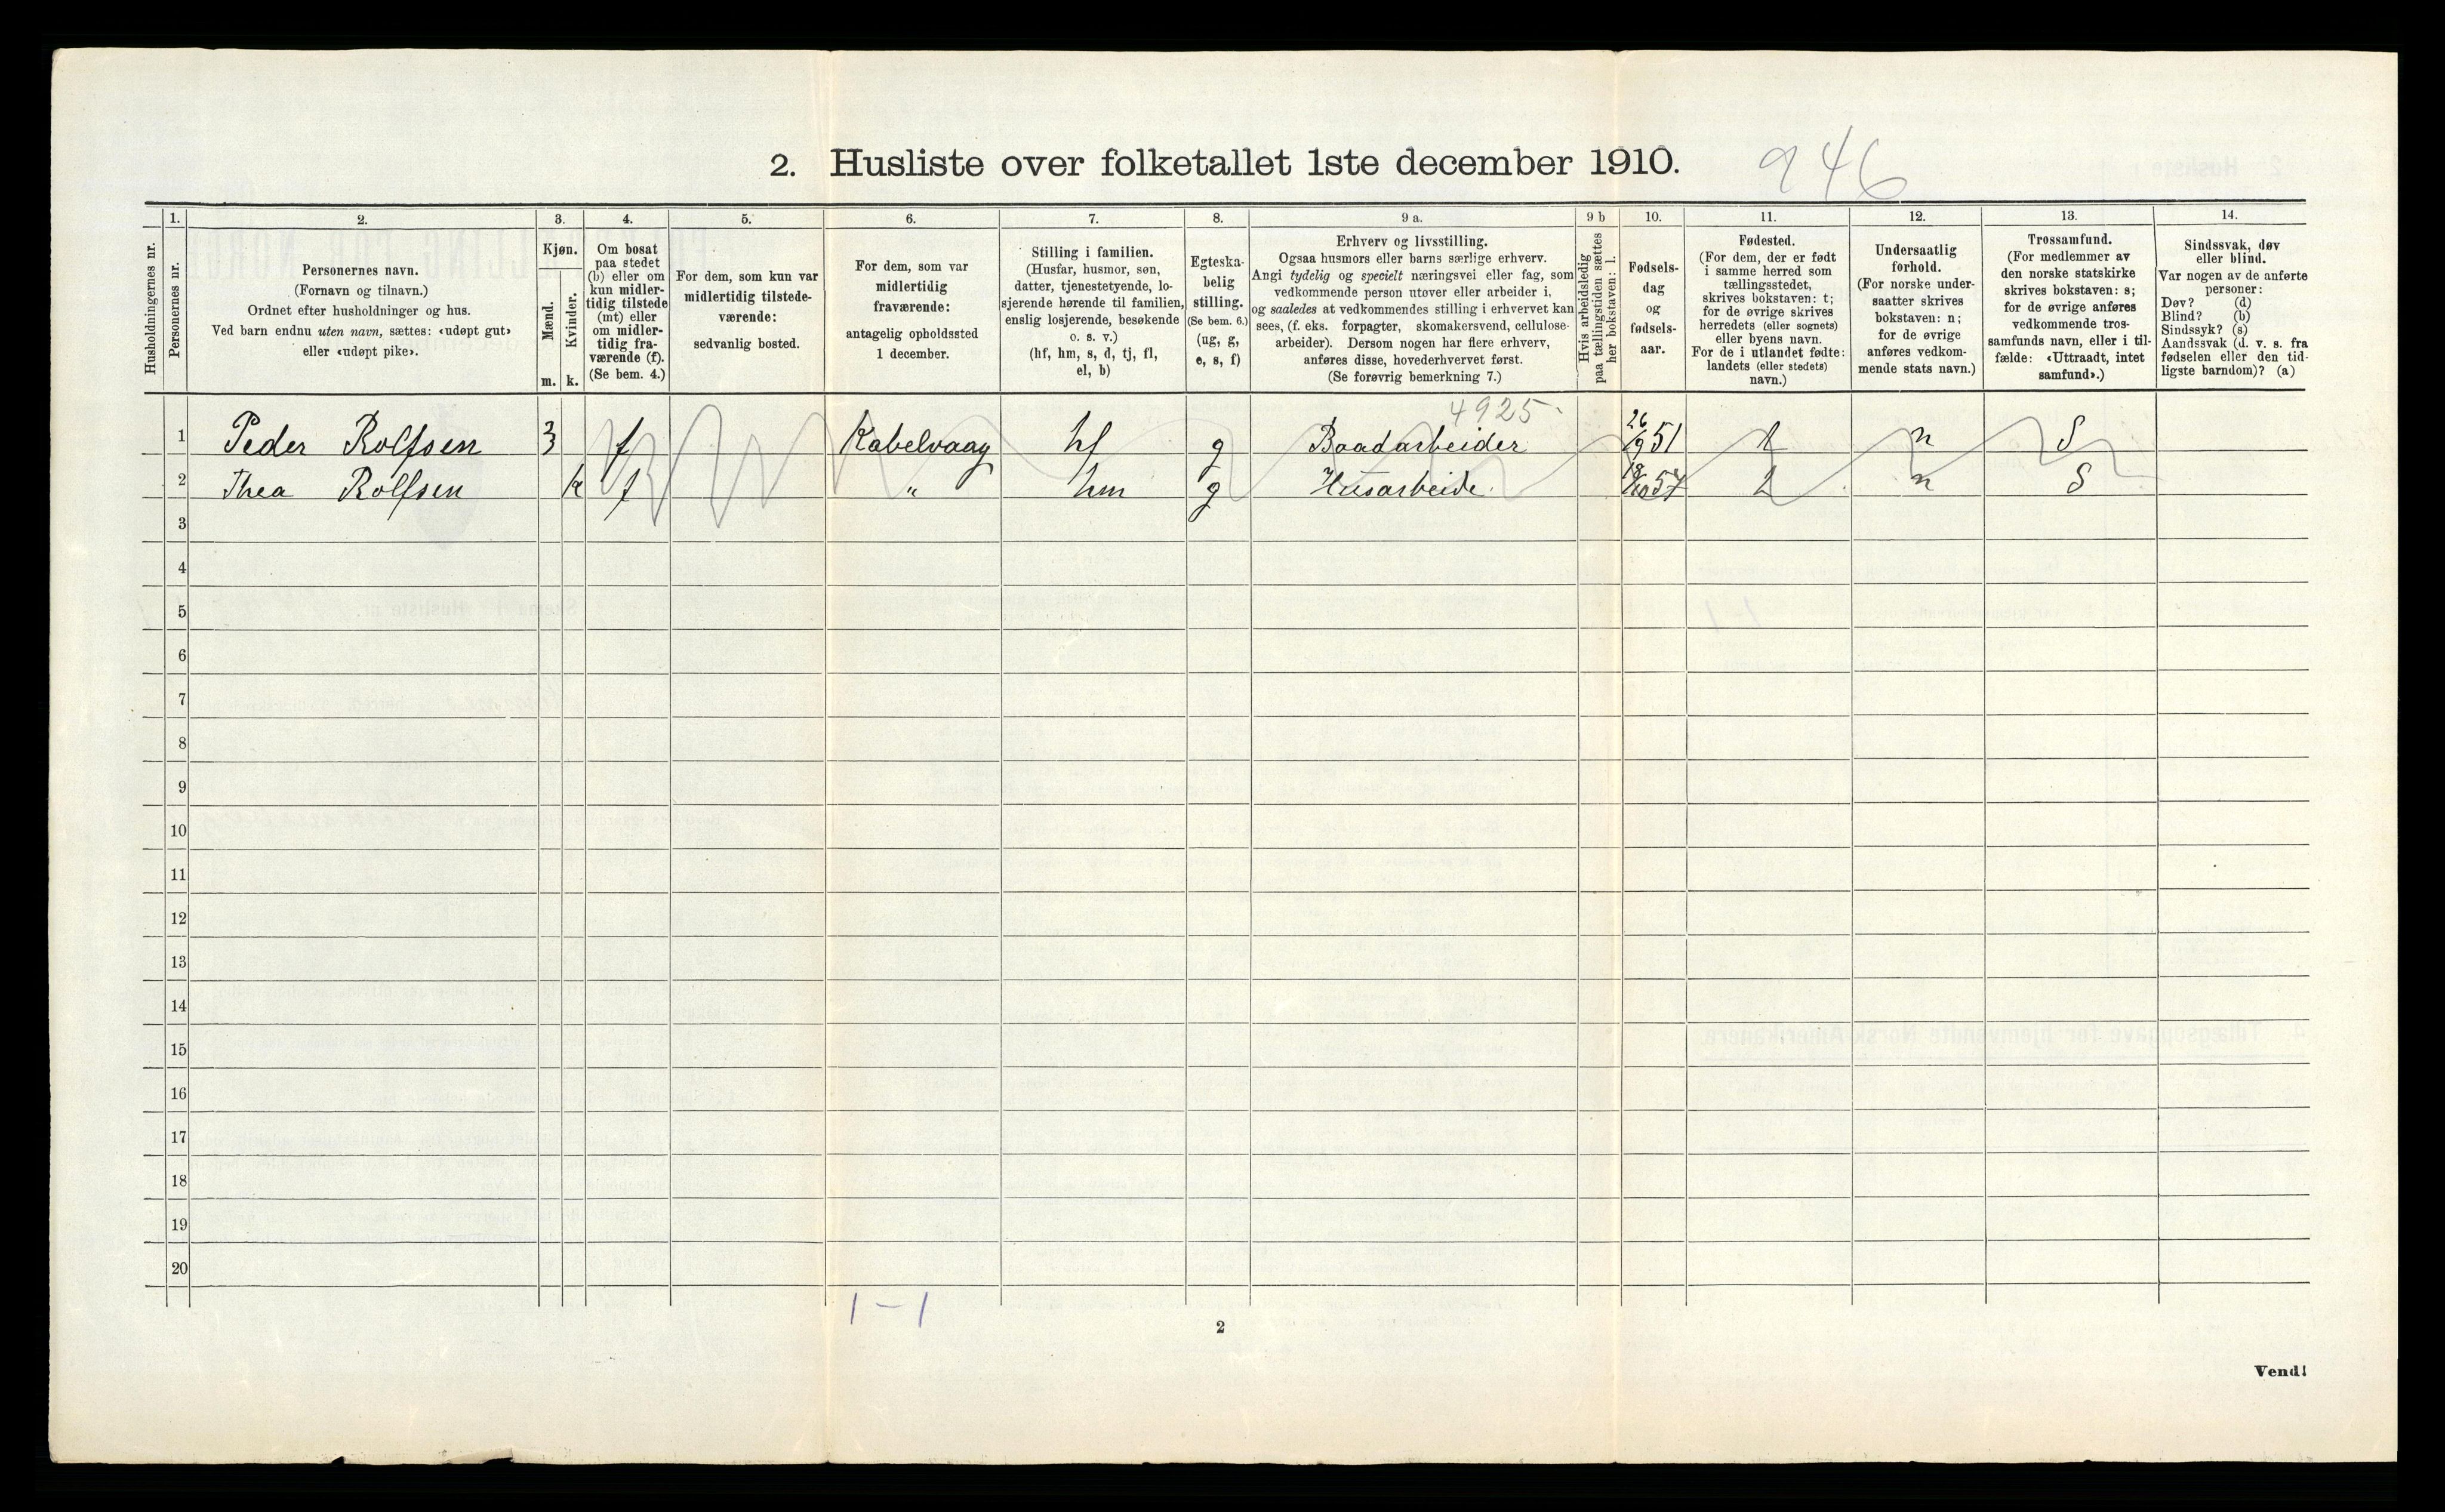 2. Husliste over folketallet 1ste december 1910. 946
Husholdningernes nr.
1.
Personernes nr.
2.
Personernes navn.
(Fornavn og tilnavn.)
Ordnet efter husholdninger og hus.
Ved barn endnu uten navn, sættes: «udøpt gut»
eller «udøpt pike».
3.
Kjøn.
Mænd.
m.
Kvinder.
k.
4.
Om bosat
paa stedet
(b) eller om
kun midler-
tidig tilstede
(mt) eller
om midler-
tidig fra-
værende (f).
(Se bem. 4.)
5.
For dem, som kun var
midlertidig tilstede-
værende:
sedvanlig bosted.
6.
For dem, som var
midlertidig
fraværende:
antagelig opholdssted
1 december.
7.
Stilling i familien.
(Husfar, husmor, søn,
datter, tjenestetyende, lo-
sjerende hørende til familien,
enslig losjerende, besøkende
o. s. v.)
(hf, hm, s, d, tj, fl,
el, b)
8.
Egteska-
belig
stilling.
(Se bem. 6.)
(ug, g,
e, s, f)
9 a.
Erhverv og livsstilling.
Ogsaa husmors eller barns særlige erhverv.
Angi tydelig og specielt næringsvei eller fag, som
vedkommende person utøver eller arbeider i,
og saaledes at vedkommendes stilling i erhvervet kan
sees, (f. eks. forpagter, skomakersvend, cellulose-
arbeider). Dersom nogen har flere erhverv,
anføres disse, hovederhvervet først.
(Se forøvrig bemerkning 7.)
9 b
Hvis arbeidsledig
paa tællingstiden sættes
her bokstaven: l.
10.
Fødsels-
dag
og
fødsels-
aar.
11.
Fødested.
(For dem, der er født
i samme herred som
tællingsstedet,
skrives bokstaven: t;
for de øvrige skrives
herredets (eller sognets)
eller byens navn.
For de i utlandet fødte:
landets (eller stedets)
navn.)
12.
Undersaatlig
forhold.
(For norske under-
saatter skrives
bokstaven: n;
for de øvrige
anføres vedkom-
mende stats navn.)
13.
Trossamfund.
(For medlemmer av
den norske statskirke
skrives bokstaven: s;
for de øvrige anføres
vedkommende tros-
samfunds navn, eller i til-
fælde: «Uttraadt, intet
samfund».)
14.
Sindssvak, døv
eller blind.
Var nogen av de anførte
personer:
Døv? (d)
Blind? (b)
Sindssyk? (s)
Aandssvak (d. v. s. fra
fødselen eller den tid-
ligste barndom)? (a)
4925
1 Peder Rolfsen f Kabelvaag hf g Baadarbeider 26/9 51 t n S
2 Thea Rolfsen k f " hm g Husarbeide. 57 t n S
3
4
5
6
7
8
9
10
11
12
13
14
15
16
17
18
19
20
1-1
2
Vend!